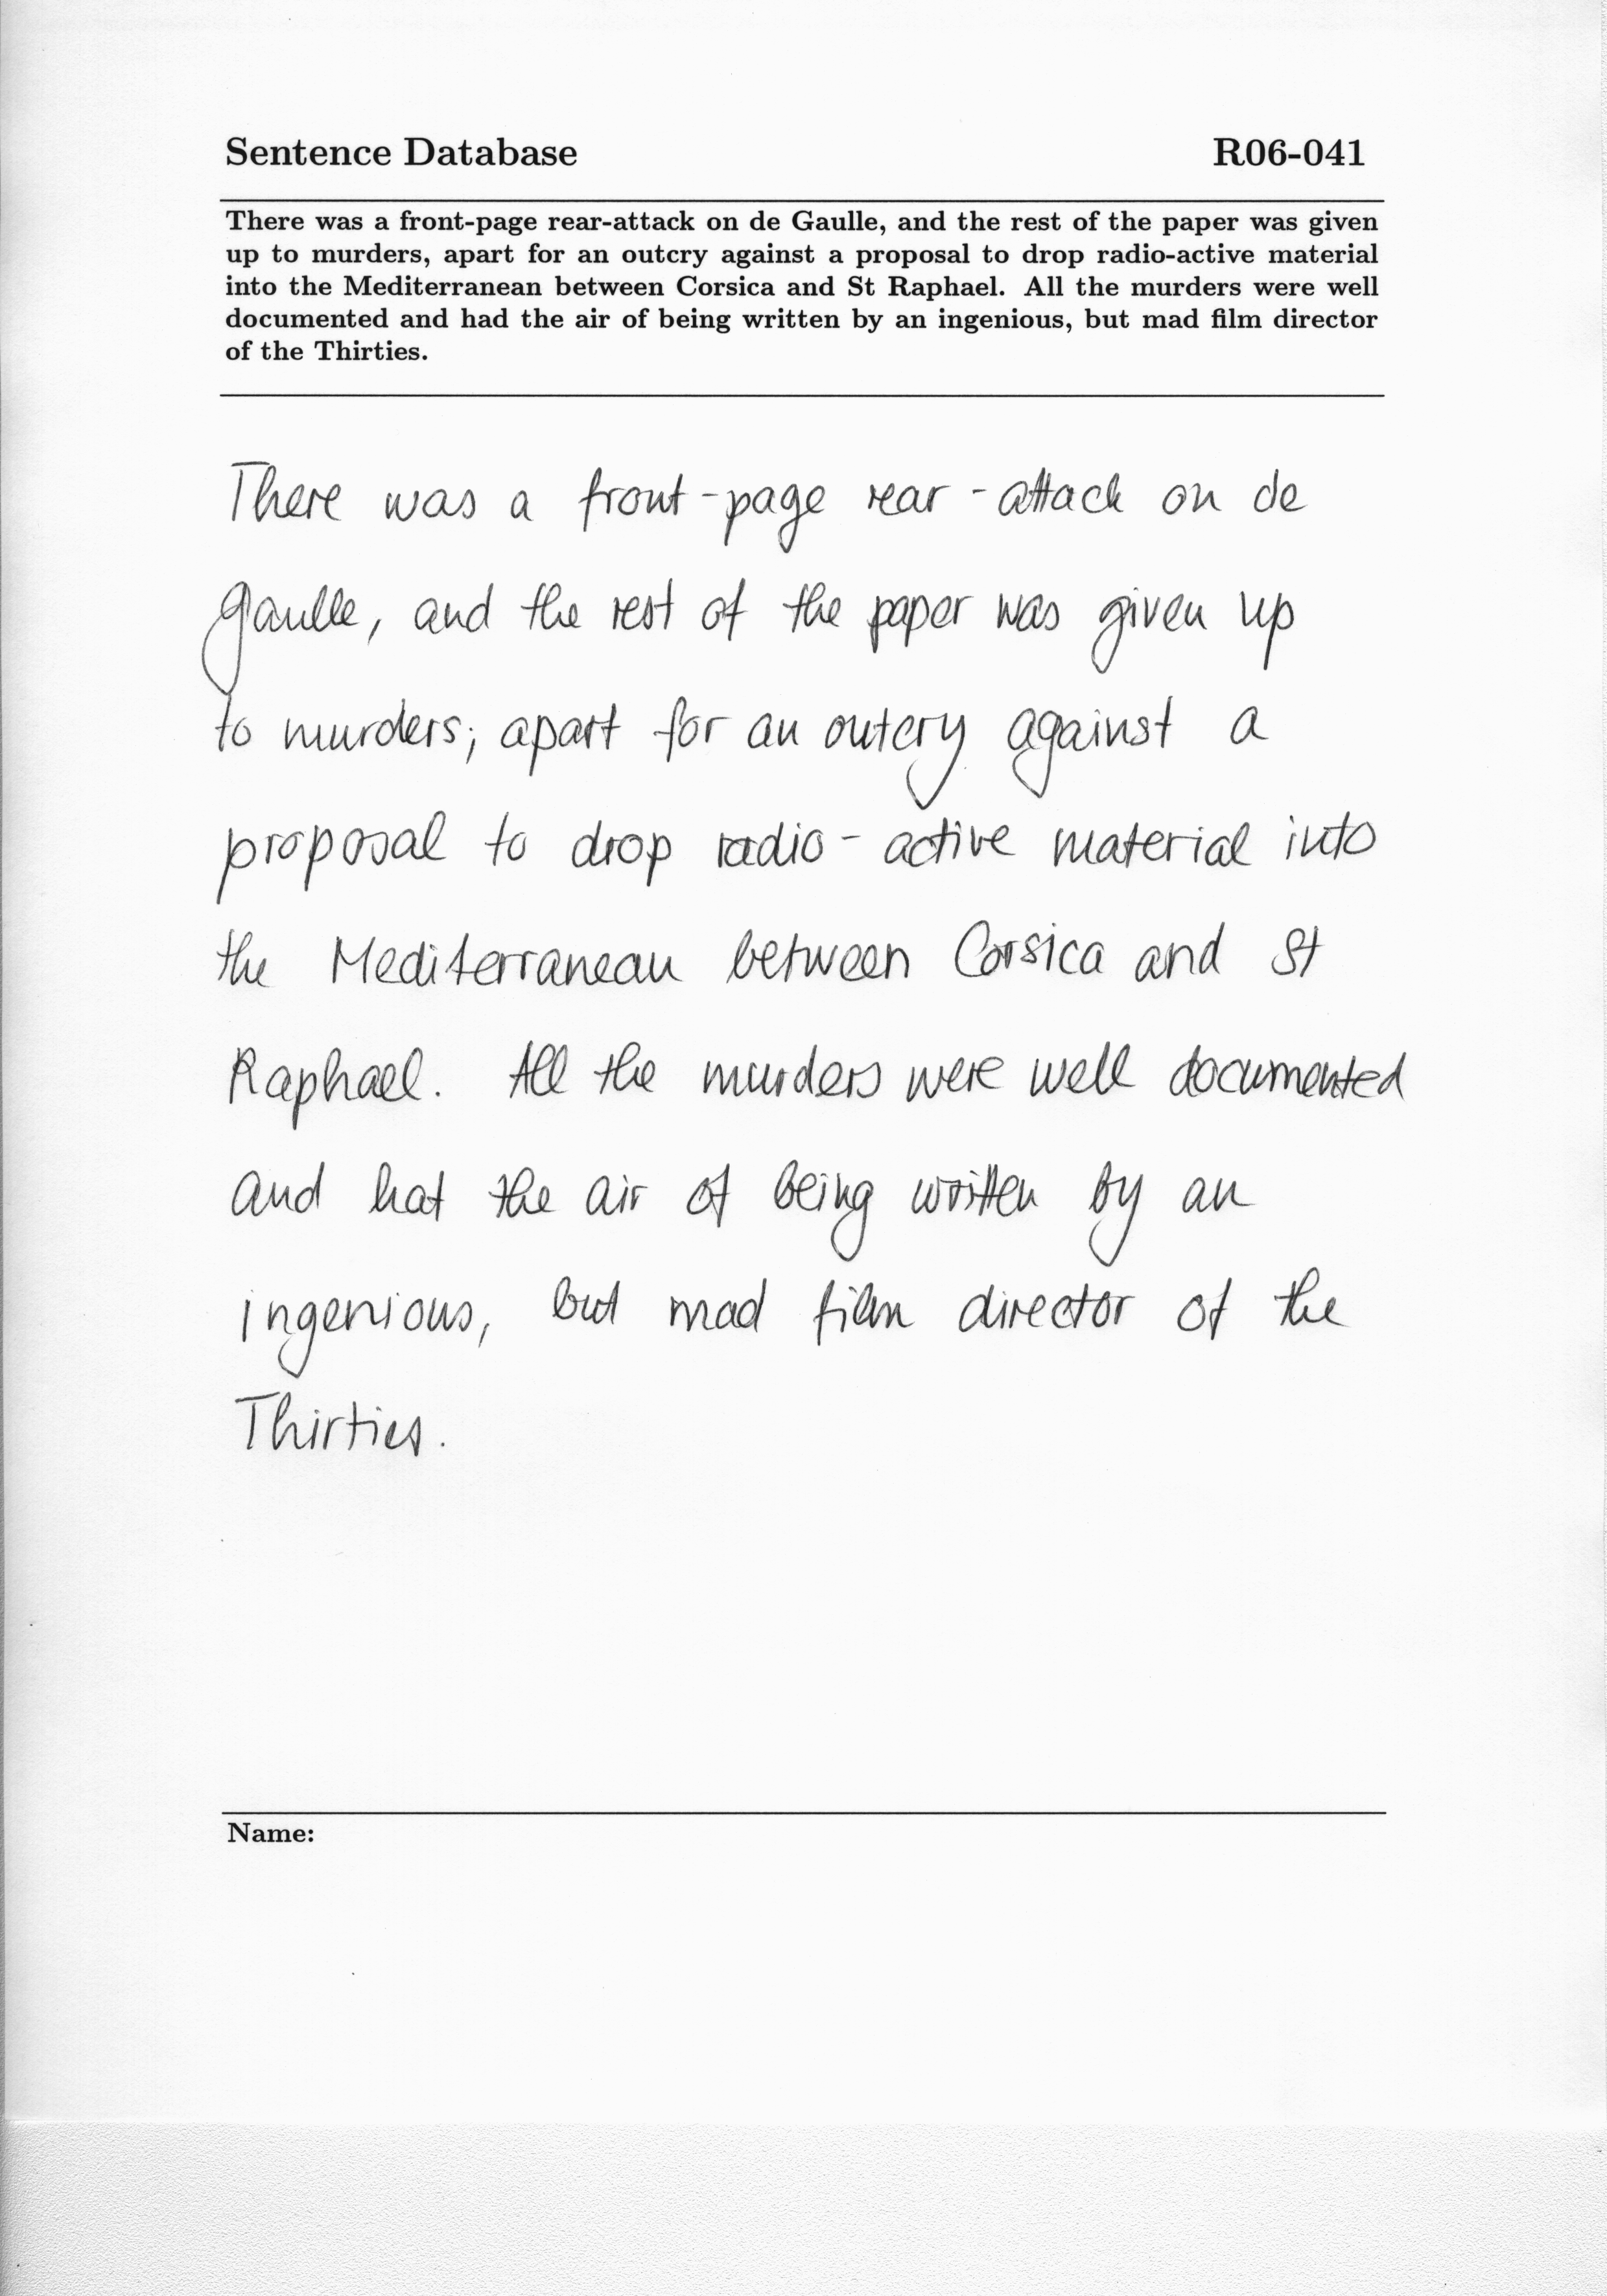 Sentence Database R06-041
There was a front-page rear-attack on de Gaulle, and the rest of the paper was given
up to murders, apart for an outcry against a proposal to drop radio-active material
into the Mediterranean between Corsica and St Raphael. All the murders were well
documented and had the air of being written by an ingenious, but mad film director
of the Thirties.
There was a front-page rear-attack on de
Gaulle, and the rest of the paper was given up
to murders; apart for an outcry against a
proposal to drop radio-active material into
the Mediterranean between Corsica and St
Raphael. All the murders were well documented
and hat the air of being written by an
ingenious, but mad film director of the
Thirties.
Name: